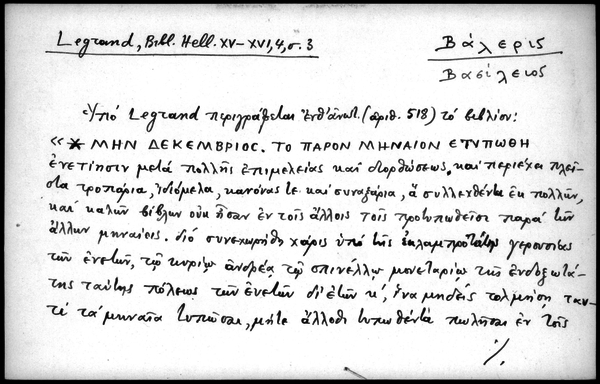 Legrand, Bibl. Hell. XV–XVI,4,σ.3
Βάλερις
Βασίλειος
Ὑπό Legrand περιγράφεται ἐνθ' ἀνωτ. (ἀριθ. 518) τό βιβλίον:
«✶ ΜΗΝ ΔΕΚΕΜΒΡΙΟC. ΤΟ ΠΑΡΟΝ ΜΗΝΑΙΟΝ ΕΤΥΠΩΘΗ
ἐνετίησιν μετά πολλῆς ἐπιμελείας καί διορθώσεως. καί περιέχει πλεῖ-
στα τροπάρια, ἰδιόμελα, κανόνας τε καί συναξάρια, ἅ συλλεχθέντα ἐκ πολλῶν,
καί καλῶν βίβλων οὐκ ἦσαν ἐν τοῖς ἄλλοις τοῖς προτυπωθεῖσι παρά τῶν
ἄλλων μηναίοις. διό συνεχωρήθη χάρις ὑπό τῆς ἐκλαμπροτάτης γερουσίας
τῶν ἐνετῶν, τῷ κυρίῳ ἀνδρέᾳ τῷ σπινέλλῳ μονεταρίῳ τῆς ἐνδοξωτά-
της ταύτης πόλεως τῶν ἐνετῶν δι' ἐτῶν κ', ἵνα μηδείς τολμήσῃ ταυ-
τί τά μηναῖα τυπῶσαι, μήτε ἄλλοθι τυπωθέντα πωλῆσαι ἐν τοῖς
./.